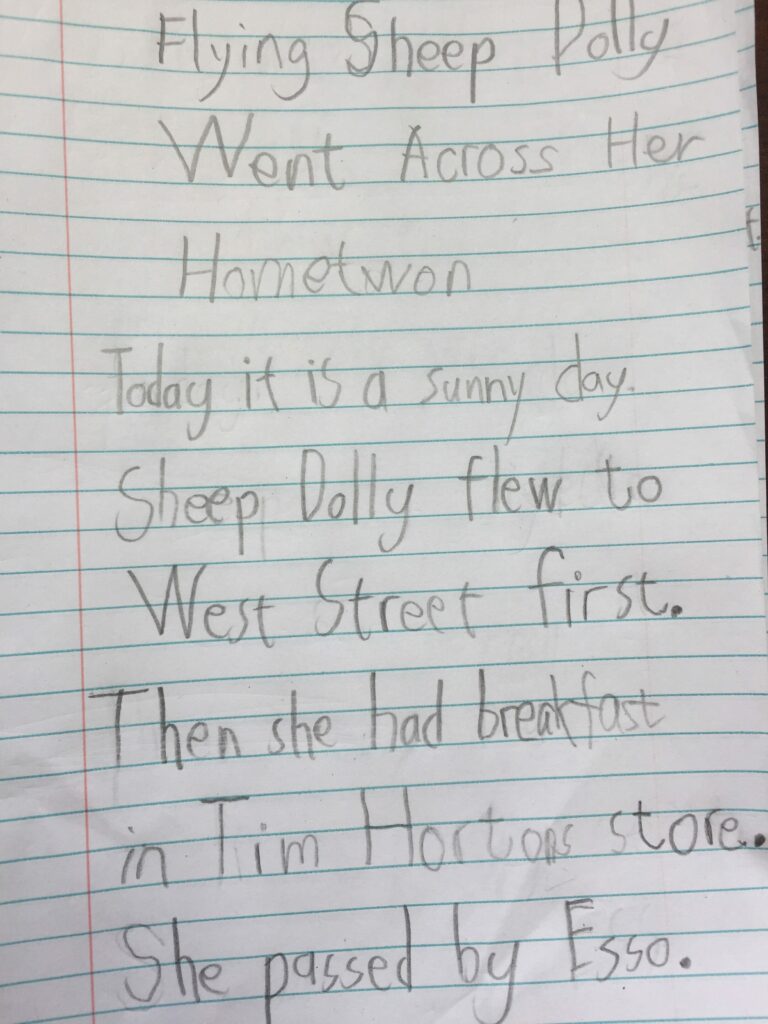 Flying Sheep Dolly
Went Across Her
Hometwon
Today it is a sunny day.
Sheep Dolly flew to
West Street first.
Then she had breakfast
in Tim Hortons store.
She passed by Esso.